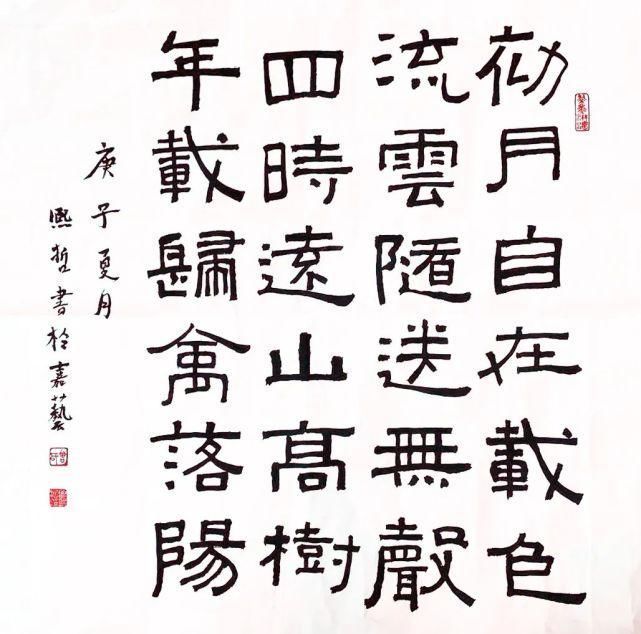 初月自在載色
流雲隨送無聲
四時遠山高樹
年載歸禽落陽
庚子夏月
熙哲書於嘉藝